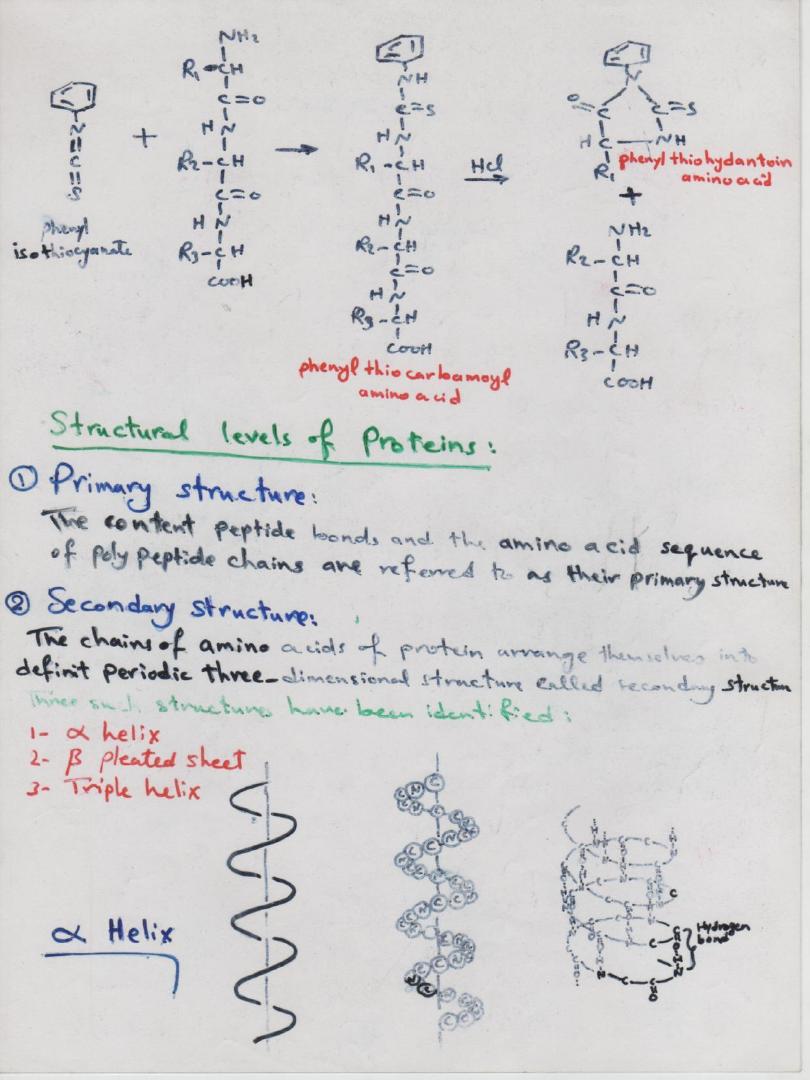 NH2
R1-CH
C=O
H N
R2-CH
C=O
H N
R3-CH
COOH
N
C
S
+
phenyl
isothiocyanate
NH
C=S
H N
R1-CH
C=O
H N
R2-CH
C=O
H N
R3-CH
COOH
phenyl thio carbamoyl
amino acid
HCl
N
O=C C=S
H C NH
R1
phenyl thiohydantoin
amino acid
+
NH2
R2-CH
C=O
H N
R3-CH
COOH
Structural levels of Proteins:
① Primary structure:
The content peptide bonds and the amino acid sequence
of poly peptide chains are referred to as their primary structure
② Secondary structure:
The chains of amino acids of protein arrange themselves into
definit periodic three-dimensional structure called secondary structure
Three such structures have been identified:
1- α helix
2- β pleated sheet
3- Triple helix
α Helix
Hydrogen
bond